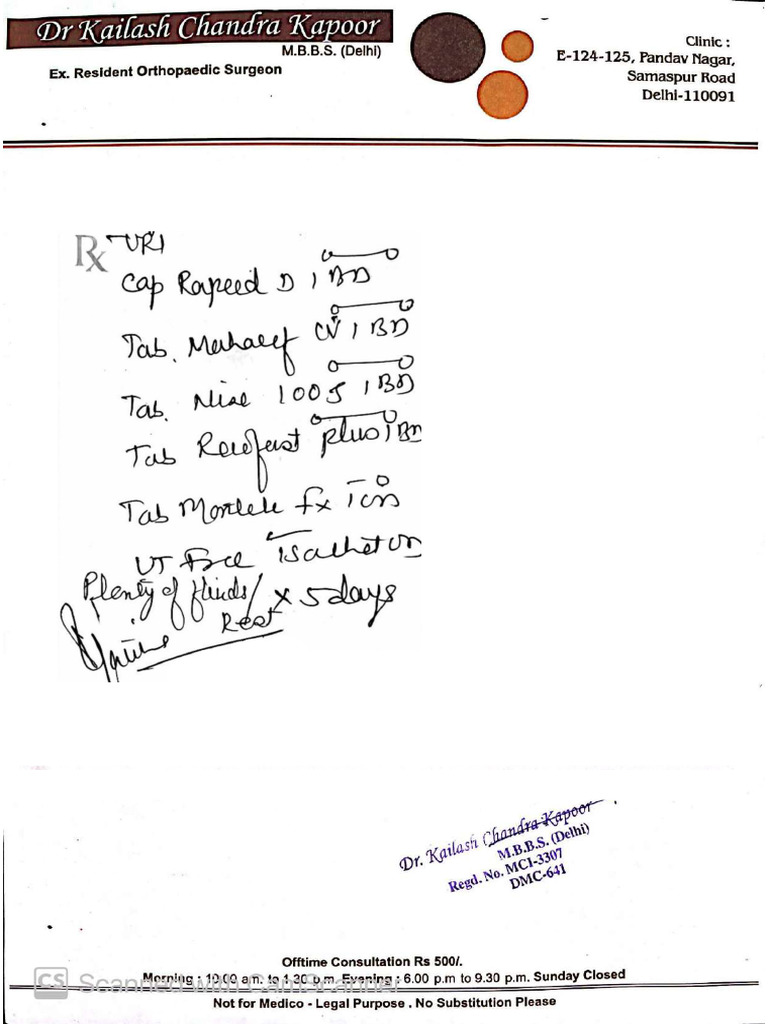 Dr Kailash Chandra Kapoor
M.B.B.S. (Delhi)
Ex. Resident Orthopaedic Surgeon
Clinic :
E-124-125, Pandav Nagar,
Samaspur Road
Delhi-110091
Rx URI
Cap Rapeed D 1 BD
Tab. CV 1 BD
Tab. Nise 100 1 BD
Tab plus 1 BD
Tab Fx
Plenty of fluids/ x 5 days
Rest
Dr. Kailash Chandra Kapoor
M.B.B.S. (Delhi)
Regd. No. MCI-3307
DMC-641
Offtime Consultation Rs 500/.
Morning : 10.00 am. to 1.30 p.m. Evening : 6.00 p.m to 9.30 p.m. Sunday Closed
CS Scanned with CamScanner
Not for Medico - Legal Purpose . No Substitution Please